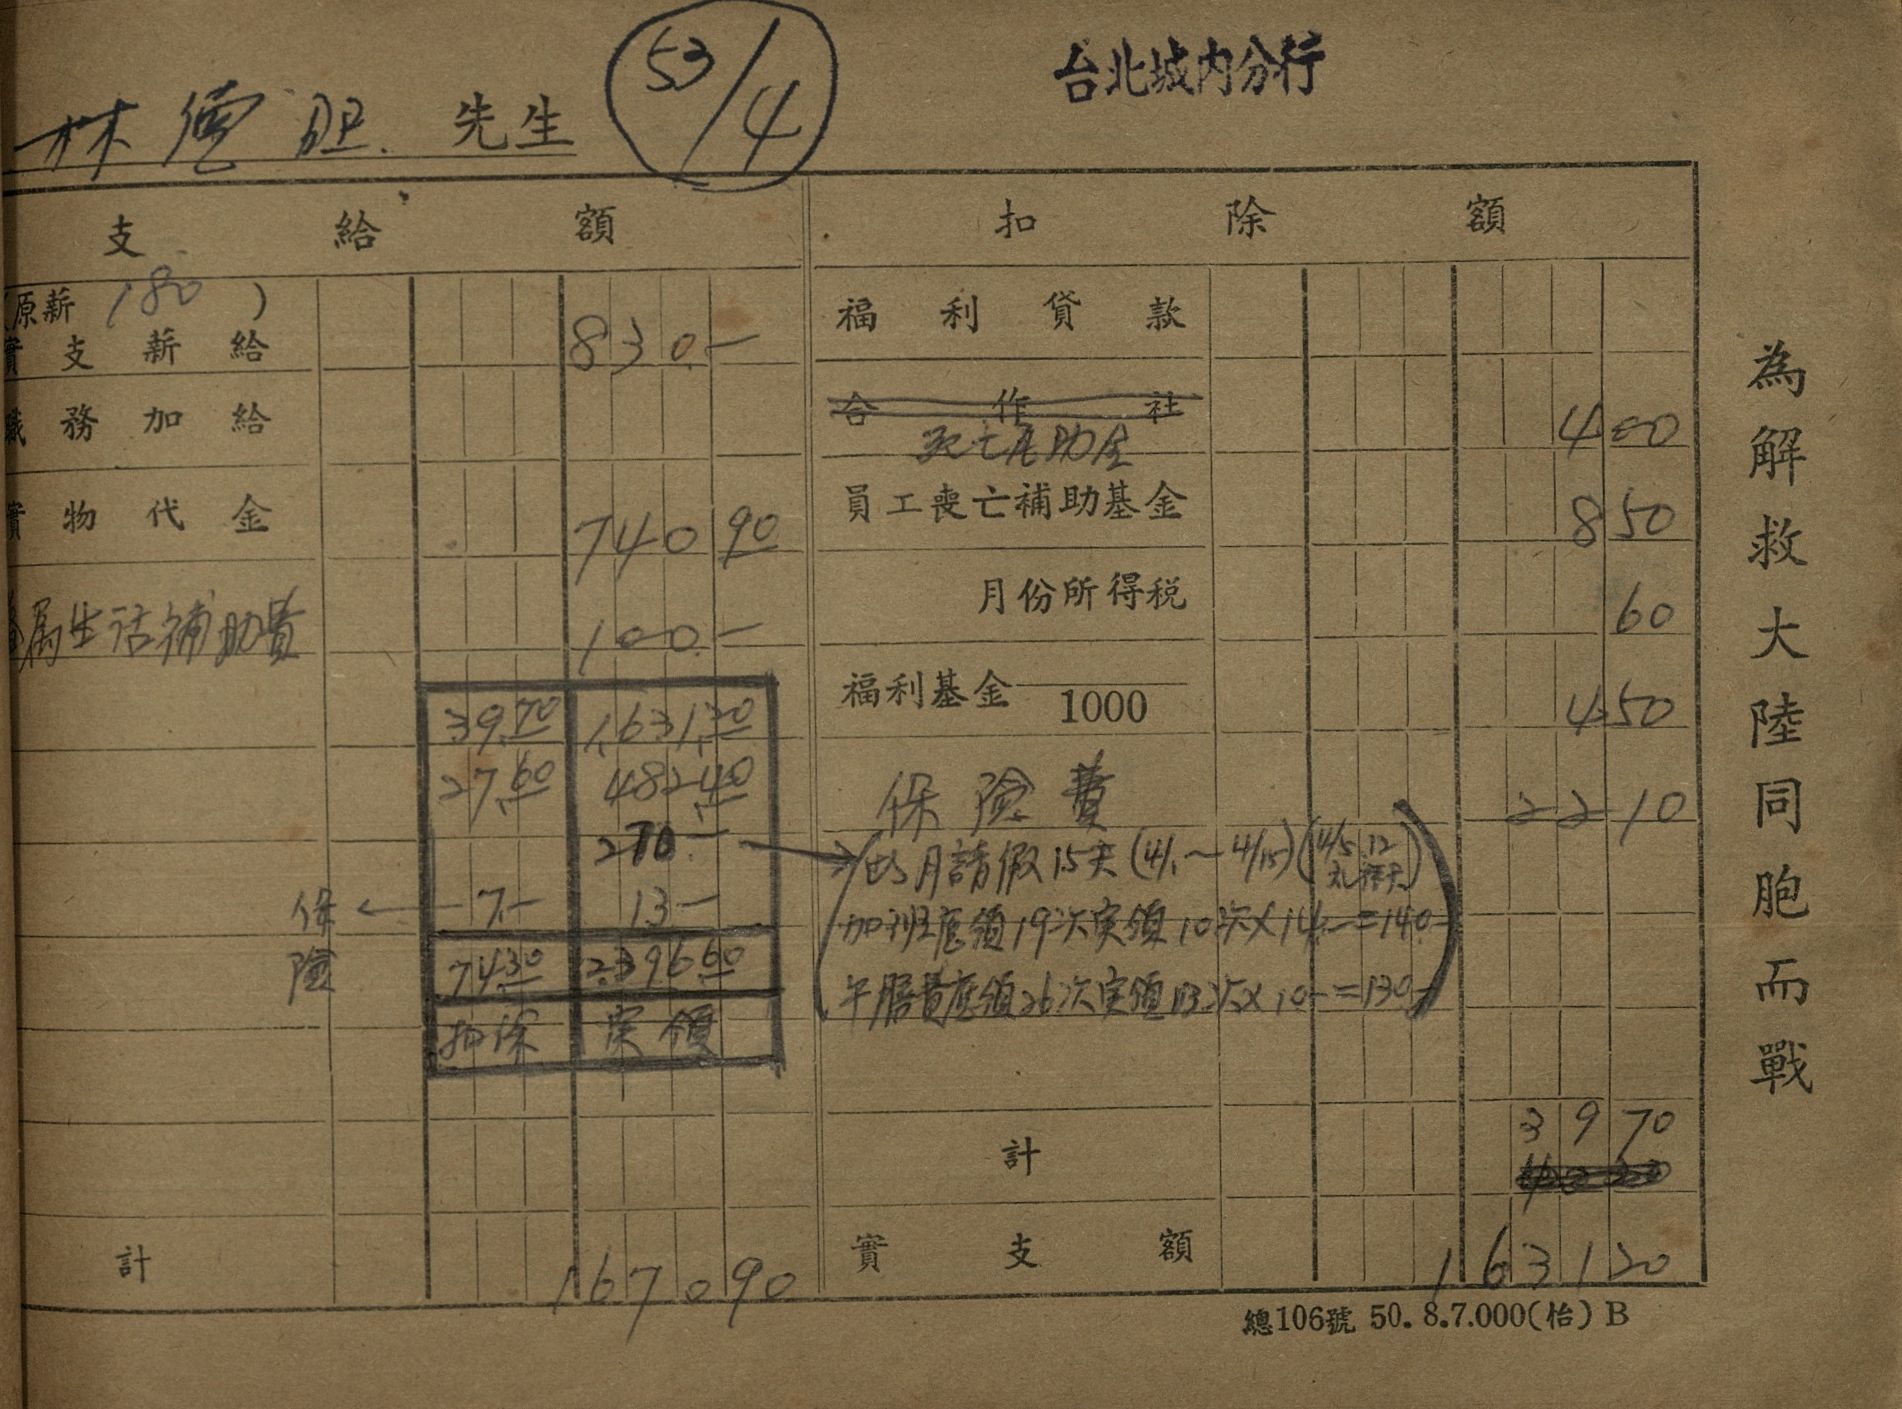 台北城內分行
53/4
林 先生
支給額
扣除額
(原薪 180 )
實支薪給 830.—
福利貸款
職務加給
合作社
死亡互助金 4 00
實物代金 740 90
員工喪亡補助基金 8 50
眷属生活補助費 100.—
月份所得税 60
福利基金 1000 4 50
39.70 1,631.20
27.60 482.40
保險費 22 10
270.—
此月請假15天(4/1~4/15)(4/5, 12 礼拜天)
保險 ← 7.— 13.—
加班應領19次実領10次×14.—=140.—
74.30 2,396.60
午膳費應領26次実領13次×10.—=130.—
扣除 実領
計 39 70
計 1670 90
實支額 1631 20
總106號 50.8.7.000(怡) B
為解救大陸同胞而戰